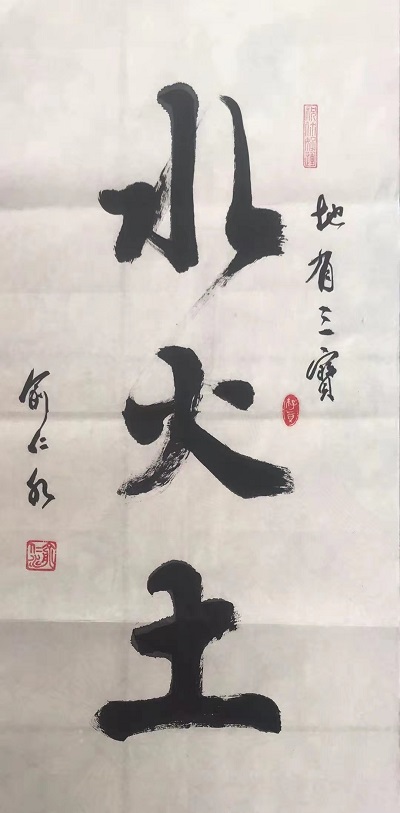 地有三寶
水火土
俞仁水